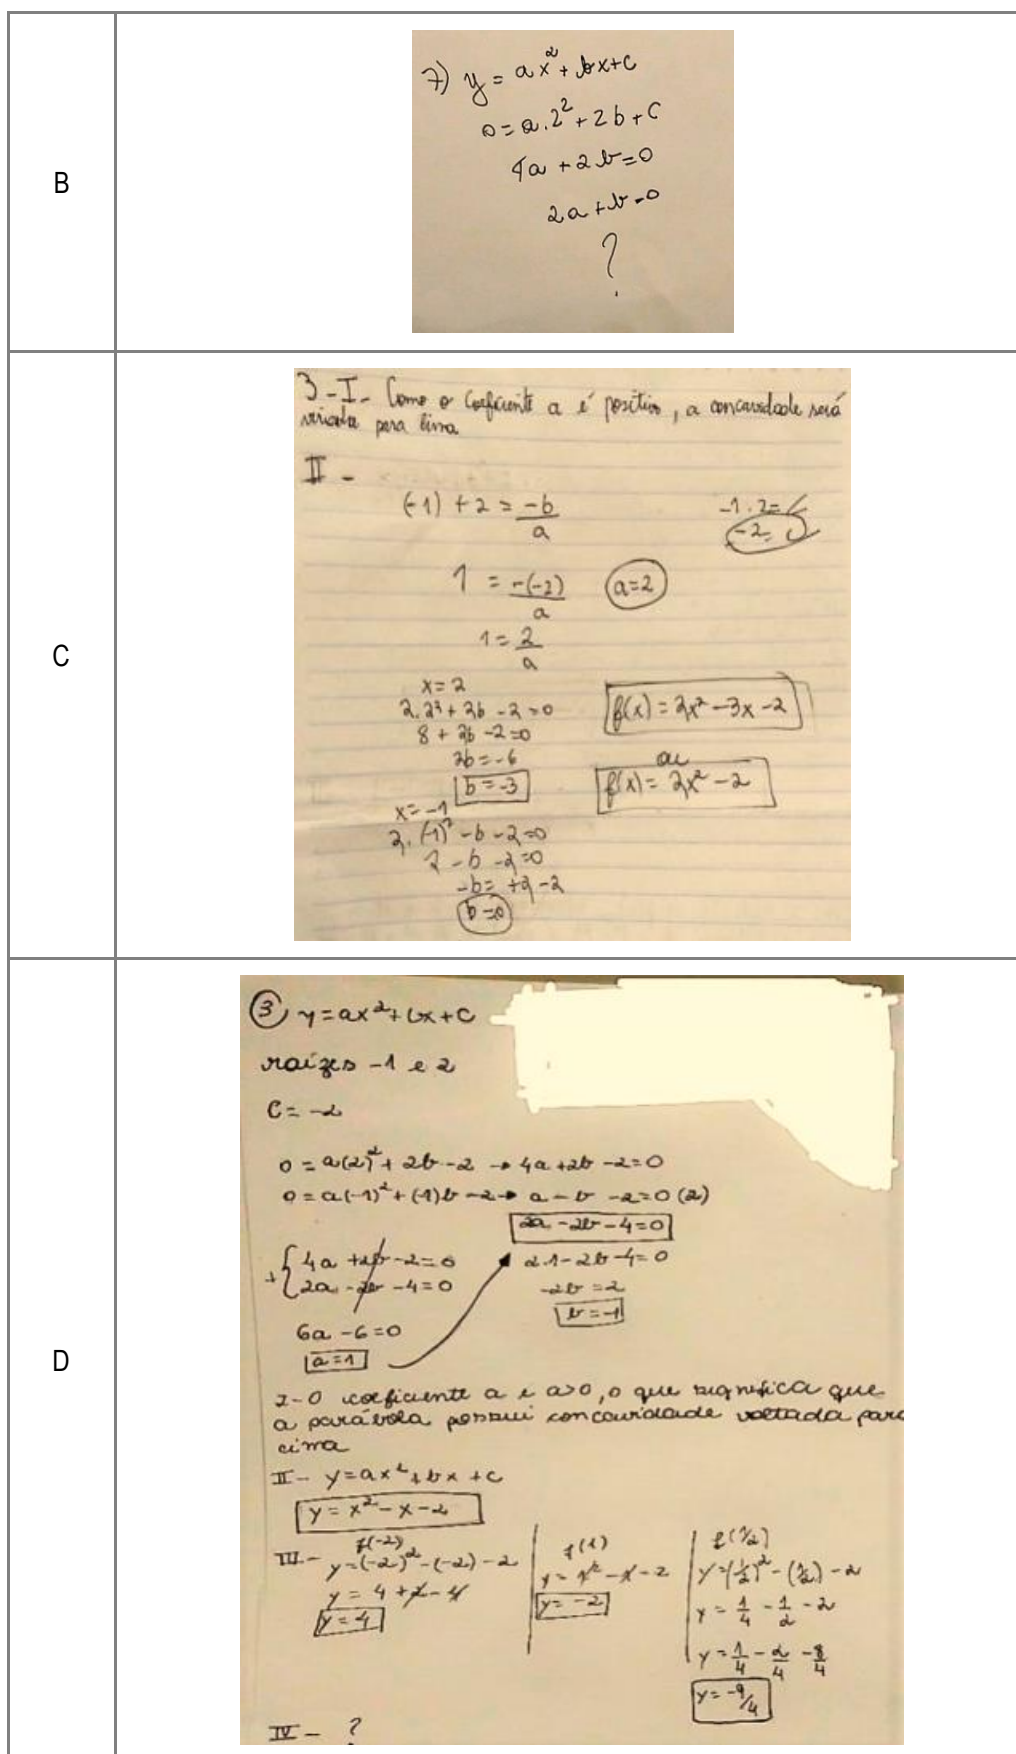 B
7) y = ax² + bx + c
0 = a.2² + 2b + c
4a + 2b = 0
2a + b = 0
?
C
3 - I - Como o coeficiente a é positivo, a concavidade será
virada para cima
II -
(-1) + 2 = -b/a
-1 . 2 = c
-2 = c
1 = -(-2)/a
a = 2
1 = 2/a
x = 2
2.2² + 2b - 2 = 0
8 + 2b - 2 = 0
2b = -6
b = -3
f(x) = 2x² - 3x - 2
ou
f(x) = 2x² - 2
x = -1
2.(-1)² - b - 2 = 0
2 - b - 2 = 0
-b = +2 - 2
b = 0
D
3 y = ax² + bx + c
raízes -1 e 2
C = -2
0 = a(2)² + 2b - 2 → 4a + 2b - 2 = 0
0 = a(-1)² + (-1)b - 2 → a - b - 2 = 0 (2)
2a - 2b - 4 = 0
+ { 4a + 2b - 2 = 0
2a - 2b - 4 = 0
6a - 6 = 0
a = 1
2.1 - 2b - 4 = 0
-2b = 2
b = -1
I - O coeficiente a é a>0, o que significa que
a parábola possui concavidade voltada para
cima
II - y = ax² + bx + c
y = x² - x - 2
III - f(-2)
y = (-2)² - (-2) - 2
y = 4 + 2 - 4
y = 4
f(1)
y = 1² - 1 - 2
y = -2
f(1/2)
y = (1/2)² - (1/2) - 2
y = 1/4 - 1/2 - 2
y = 1/4 - 2/4 - 8/4
y = -9/4
IV - ?